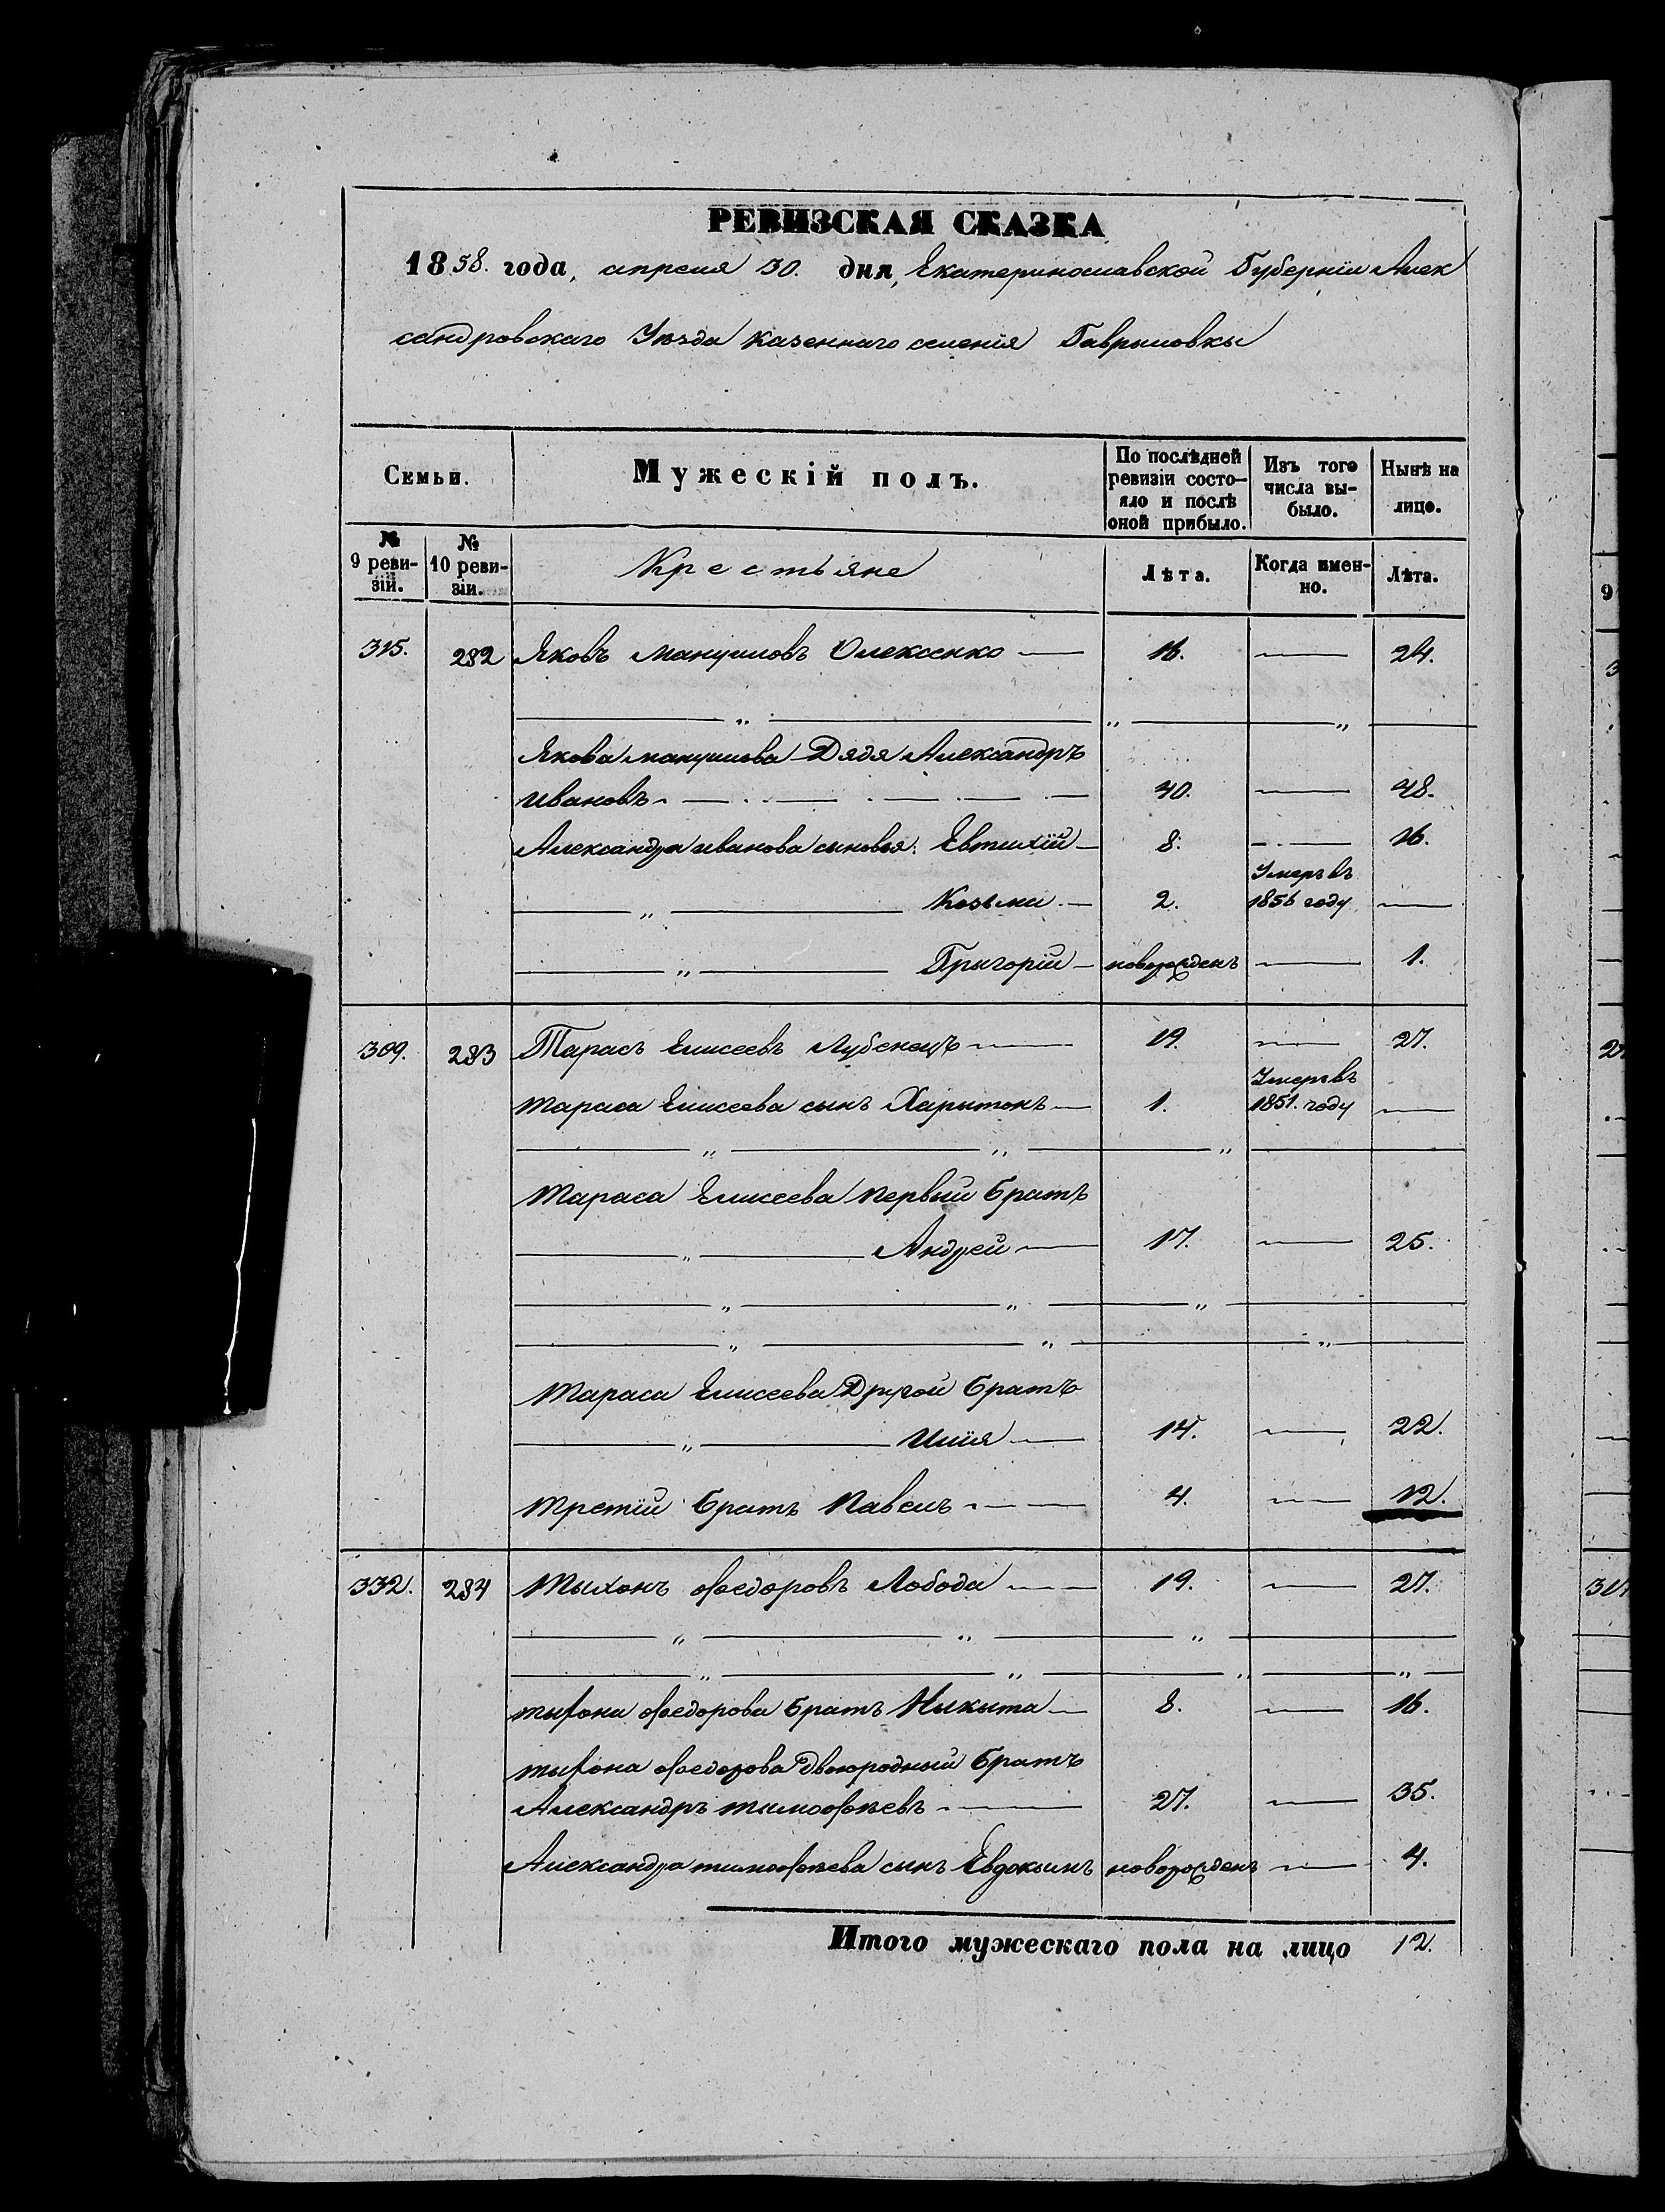 РЕВИЗСКАЯ СКАЗКА
1858. года, апреля 30. дня, Екатеринославской Губерніи Алек
сандровскаго Уѣзда казеннаго селенія Гаврыловки
Семьи. Мужескій полъ. По послѣдней ревизіи состояло и послѣ оной прибыло. Изъ того числа выбыло. Нынѣ на лицо.
№ 9 ревизій. № 10 ревизіи. Крестьяне Лѣта. Когда именно. Лѣта.
315. 282 Яковъ мануиловъ Олексенко 16. — 24.
Якова мануилова Дядя Александръ
ивановъ 40. — 48.
Александра иванова сыновья: Евтихій 8. — 16.
Умеръ въ
" Козьма 2. 1856 году —
" Григорій новорожденъ — 1.
309. 283 Тарасъ Елисеевъ Лубенецъ 19. — 27.
Умеръ въ
тараса Елисеева сынъ Харытонъ 1. 1851. году —
тараса Елисеева первый братъ
" Андрей 17. — 25.
тараса Елисеева Другой братъ
" Илія 14. — 22.
третій братъ Павелъ 4. — 12.
332. 284 тыхонъ Федоровъ Лобода 19. — 27.
тыхона Федорова братъ Никита 8. — 16.
тыхона Федорова Двоюродный братъ
Александръ тимофѣевъ 27. — 35.
Александра тимофѣева сынъ Евдокимъ новорожденъ — 4.
Итого мужескаго пола на лицо 12.